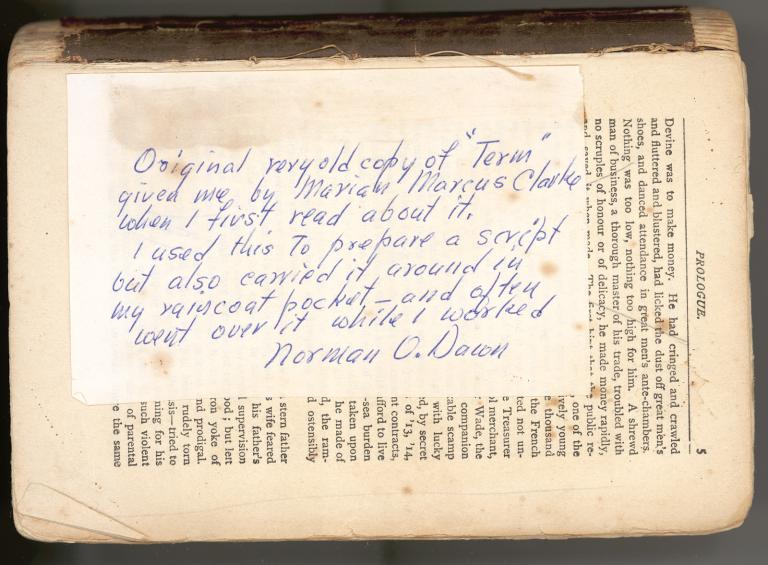 Original very old copy of "Term"
given me by Marian Marcus Clarke
when I first read about it.
I used this To prepare a script
but also carried it around in
my raincoat pocket – and often
went over it while I worked
Norman O. Dawn
PROLOGUE. 5
Devine was to make money. He had cringed and crawled
and fluttered and blustered, had licked the dust off great men's
shoes, and danced attendance in great men's ante-chambers.
Nothing was too low, nothing too high for him. A shrewd
man of business, a thorough master of his trade, troubled with
no scruples of honour or of delicacy, he made money rapidly,
and saved it when made. The first hint that the public re-
, one of the
vely young
e thousand
the French
ted not un-
e Treasurer
l merchant,
Wade, the
companion
able scamp
with lucky
d, by secret
of '13, '14,
nt contracts,
fford to live
-sea burden
taken upon
he made of
d, the ram-
d ostensibly
stern father
s wife feared
his father's
l supervision
ood; but left
ron yoke of
nd prodigal.
rudely torn
sis—tried to
ning for his
such violent
of parental
e the same